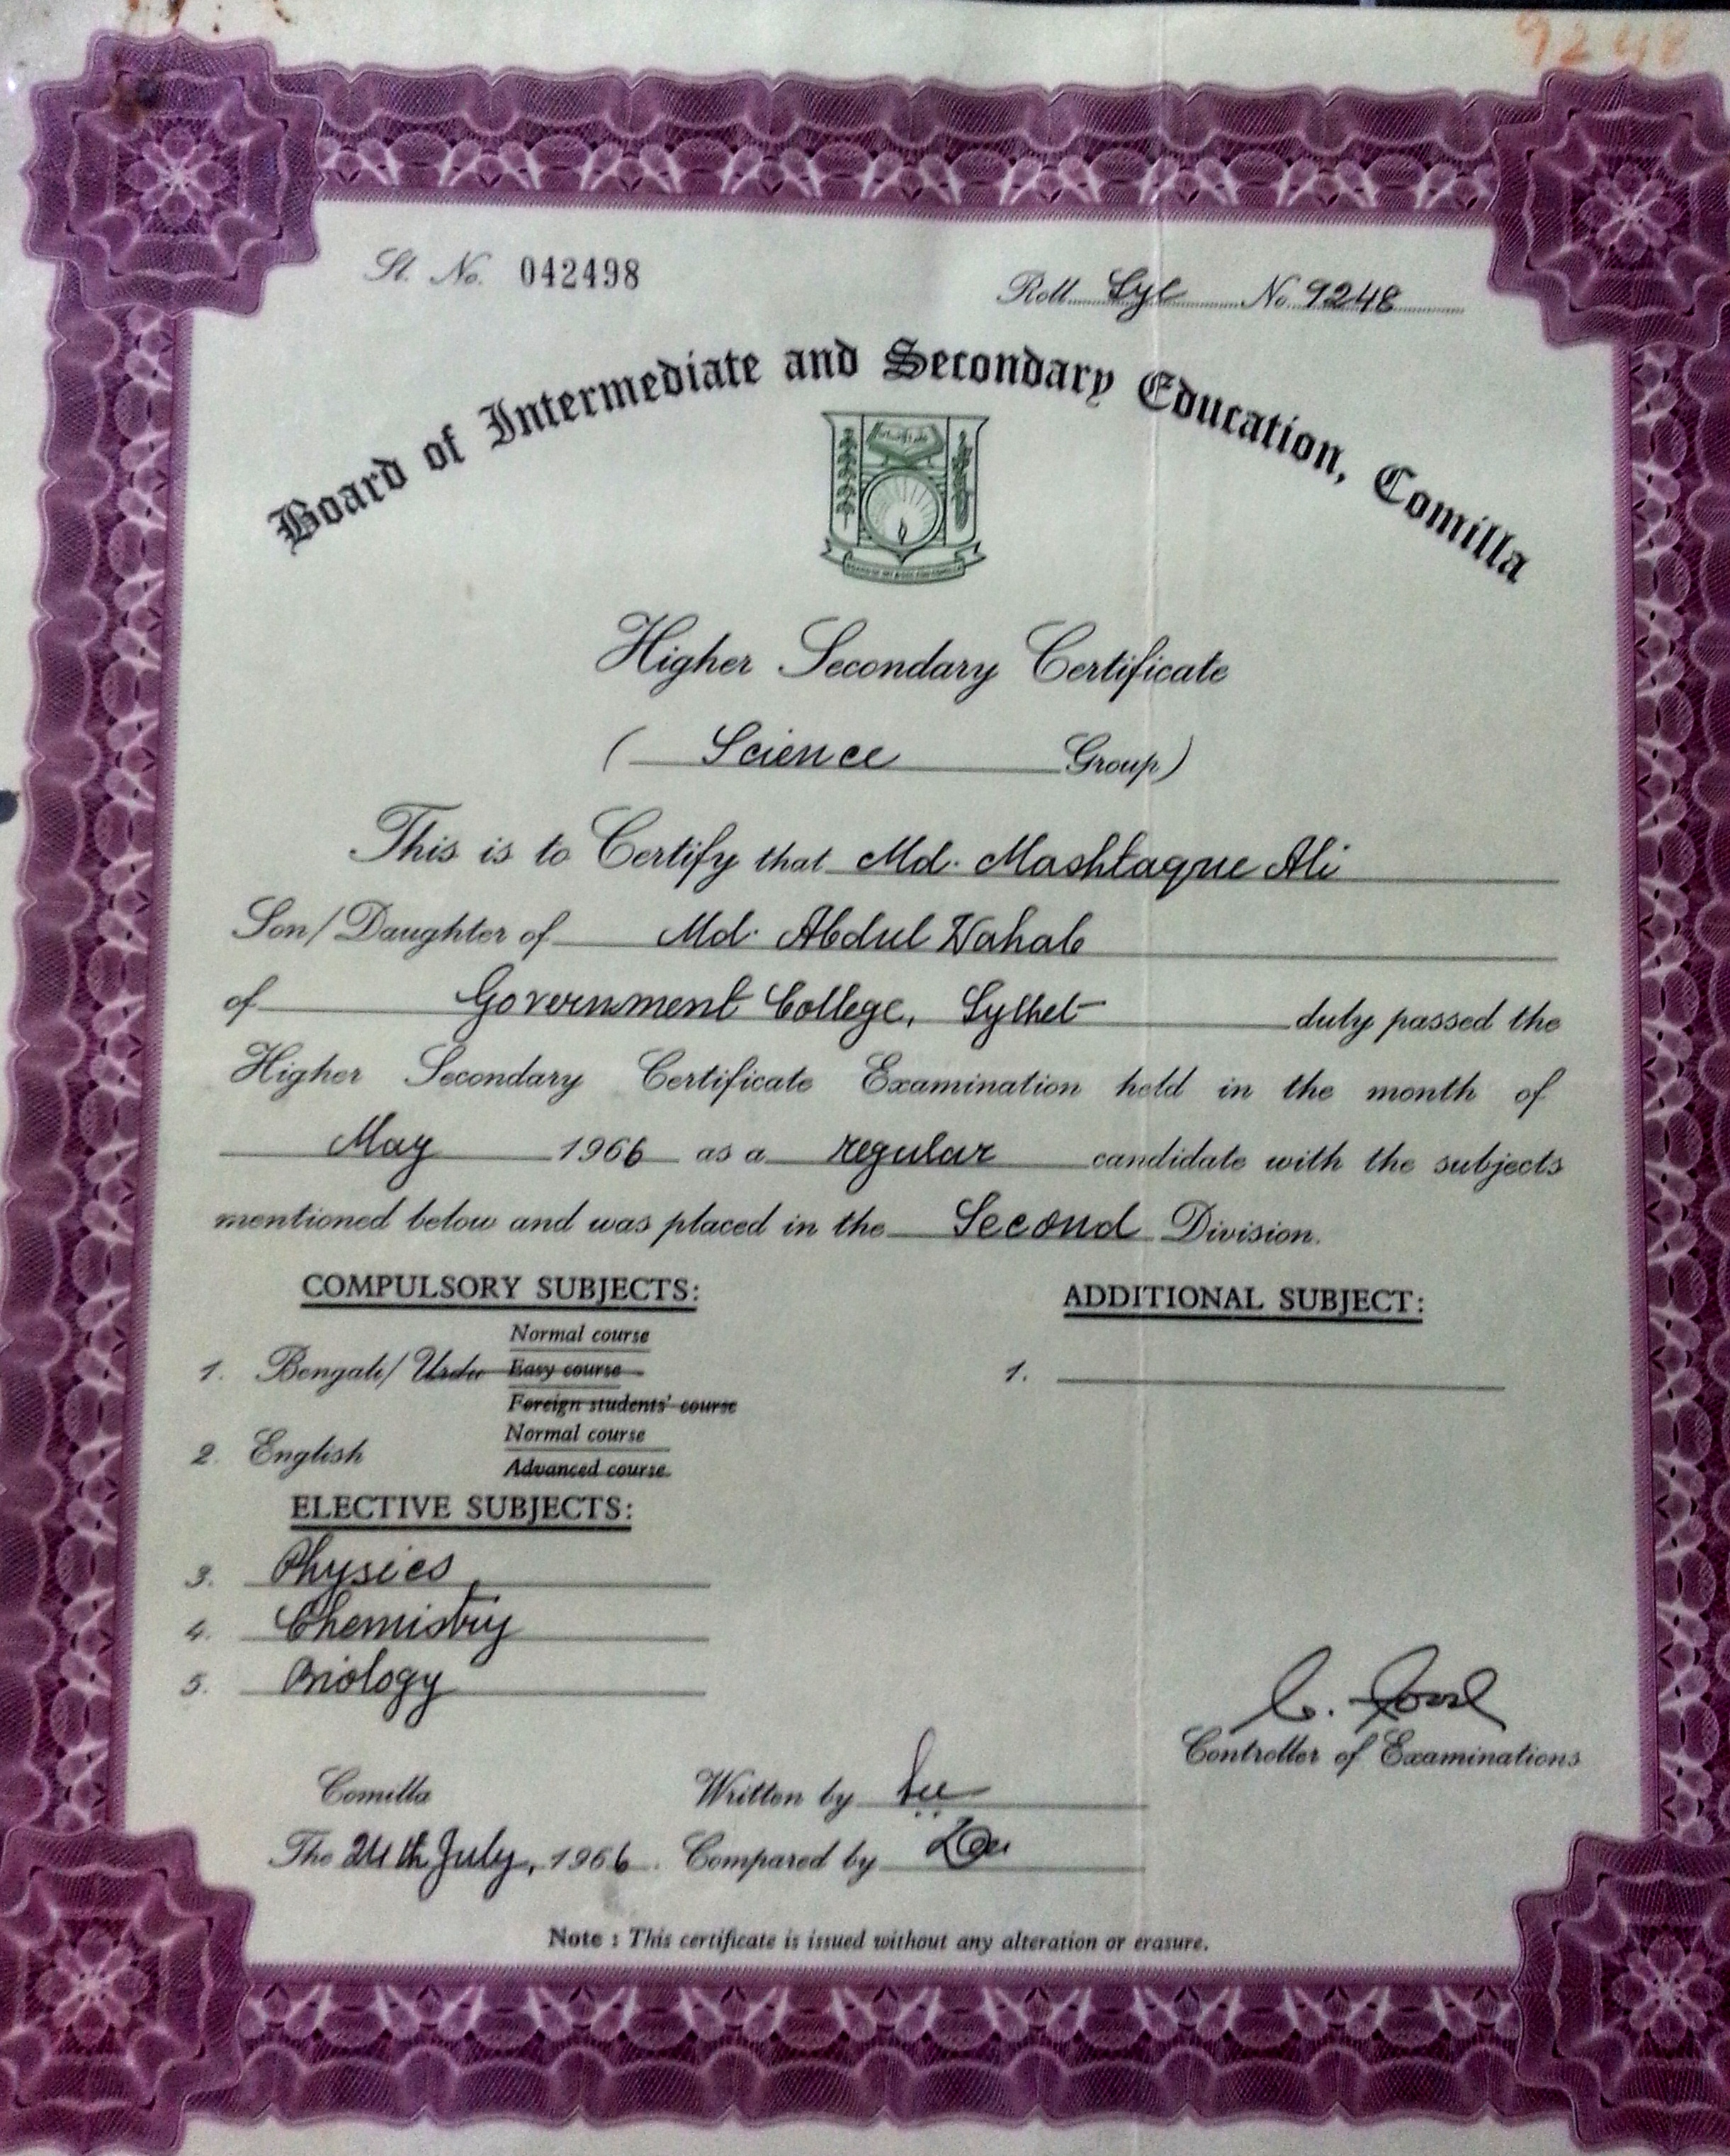 9248
Sl. No. 042498 Roll Syl No 9248
Board of Intermediate and Secondary Education, Comilla
Higher Secondary Certificate
( Science Group)
This is to Certify that Md. Mashtaque Ali
Son/Daughter of Md. Abdul Wahab
of Government College, Sylhet duly passed the
Higher Secondary Certificate Examination held in the month of
May 1966 as a regular candidate with the subjects
mentioned below and was placed in the Second Division.
COMPULSORY SUBJECTS: ADDITIONAL SUBJECT:
Normal course
1. Bengali/Urdu Easy course 1.
Foreign students' course
Normal course
2. English
Advanced course
ELECTIVE SUBJECTS:
3. Physics
4. Chemistry
5. Biology
Controller of Examinations
Comilla Written by
The 24th July, 1966. Compared by
Note : This certificate is issued without any alteration or erasure.